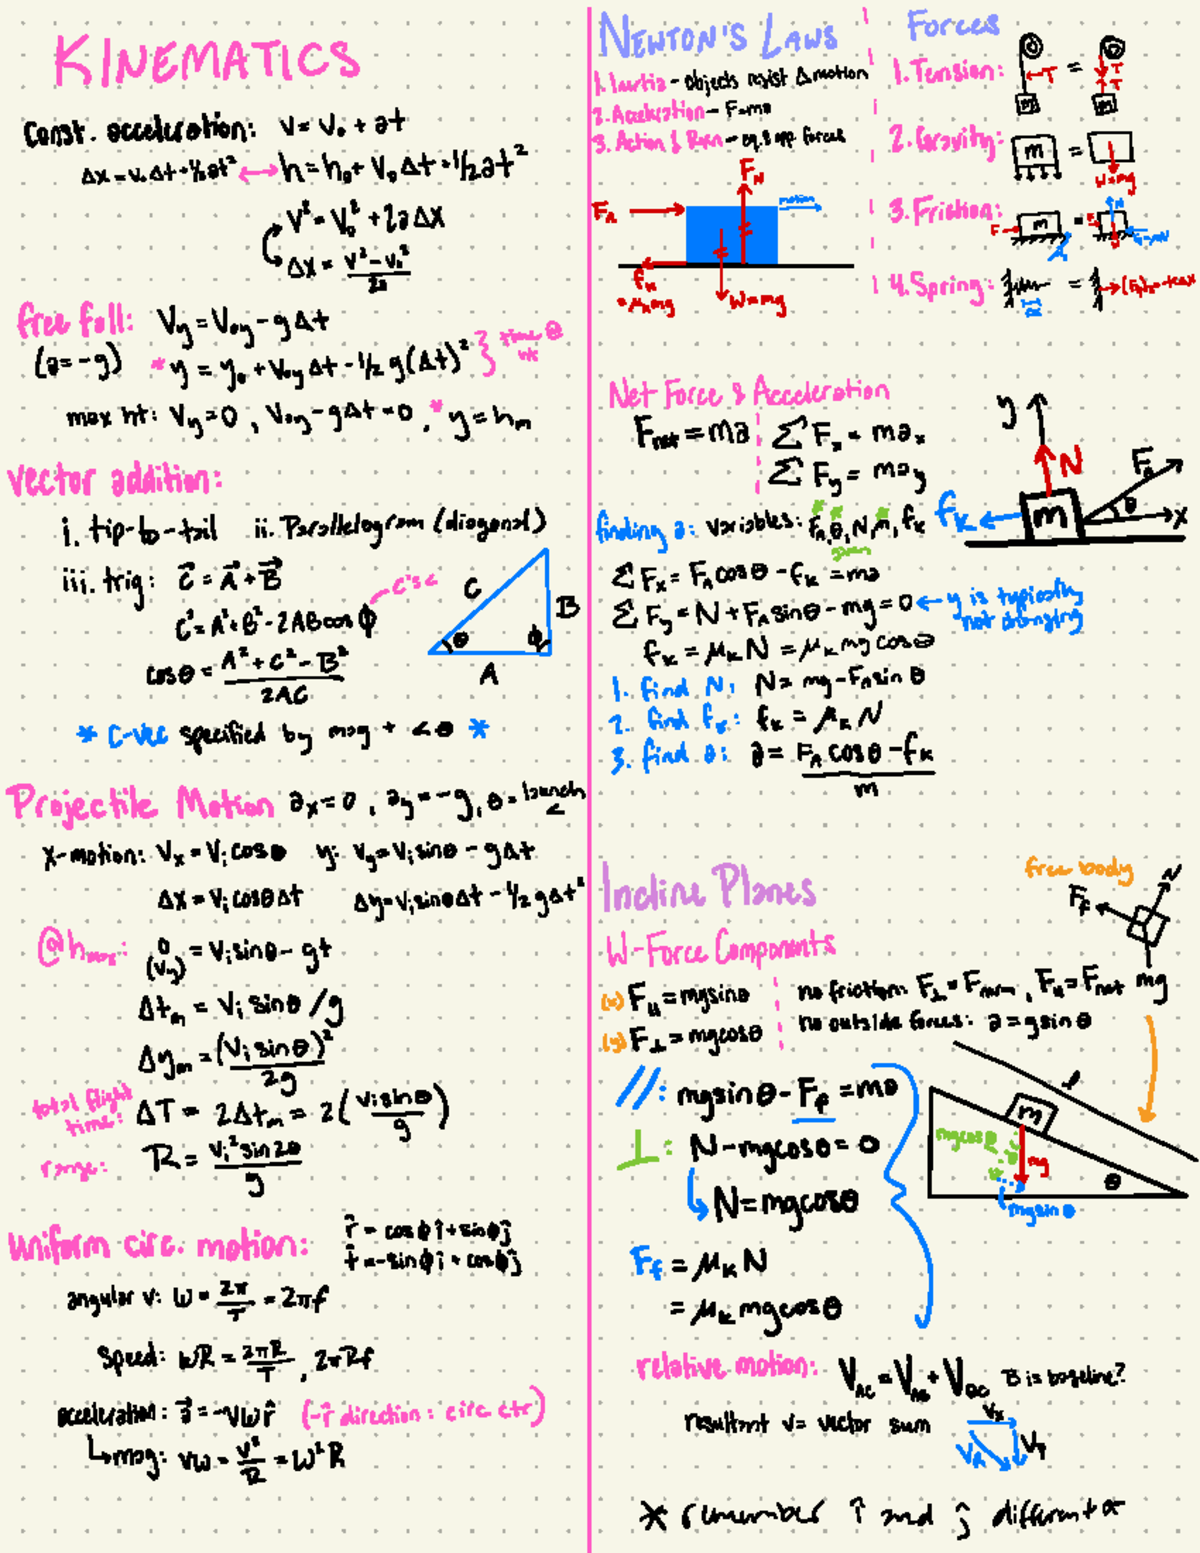 KINEMATICS
const. acceleration: v = v₀ + at
Δx = v₀Δt + ½at² ↔ h = h₀ + v₀Δt + ½at²
v² = v₀² + 2aΔx
Δx = (v² − v₀²)/2a
free fall: Vy = V₀y − gΔt
(a = −g) * y = y₀ + V₀yΔt − ½g(Δt)² } time @
max ht: Vy = 0, V₀y − gΔt = 0, * y = hm
vector addition:
i. tip-to-tail ii. Parallelogram (diagonal)
iii. trig: C⃗ = A⃗ + B⃗
C's <
C² = A² + B² − 2ABcosϕ
cosθ = (A² + C² − B²)/2AC
C B A θ ϕ
* C-vec specified by mag + <θ *
Projectile Motion ax = 0, ay = −g, θ = launch <
x-motion: Vx = Vi cosθ y: Vy = Vi sinθ − gΔt
Δx = Vi cosθΔt Δy = Vi sinθΔt − ½gΔt²
@hmax: 0 (Vy) = Vi sinθ − gt
Δtm = Vi sinθ/g
Δym = (Vi sinθ)²/2g
total flight time: ΔT = 2Δtm = 2(Vi sinθ/g)
range: R = Vi² sin2θ/g
uniform circ. motion: r̂ = cosϕî + sinϕĵ
t̂ = −sinϕî + cosϕĵ
angular v: ω = 2π/T = 2πf
speed: ωR = 2πR/T, 2πRf
acceleration: a⃗ = −vωr̂ (−r̂ direction: circ ctr)
↳mag: vω = v²/R = ω²R
NEWTON'S LAWS
1. Inertia - objects resist Δmotion
2. Acceleration - F=ma
3. Action & Rxn - eq. & opp. forces
FN
FA motion
fk = μk mg W=mg
Forces
1. Tension: T = T T m m
2. Gravity: m = W=mg
3. Friction: F m = N
4. Spring: =
Net Force & Acceleration
Fnet = ma ΣFx = max
ΣFy = may
y N FA fk m θ x
finding a: variables: FA, θ, N, m, fk
given
ΣFx = FA cosθ − fk = ma
ΣFy = N + FA sinθ − mg = 0 ← y is typically not changing
fk = μk N = μk mg cosθ
1. find N: N = mg − FA sinθ
2. find fk: fk = μk N
3. find a: a = (FA cosθ − fk)/m
Incline Planes
free body
Ff N mg
W-Force Components
(x) F∥ = mgsinθ no friction: F⊥ = Fnorm, F∥ = Fnet
(y) F⊥ = mgcosθ no outside forces: a = gsinθ
//: mgsinθ − Ff = ma
⊥: N − mgcosθ = 0
↳ N = mgcosθ
l m mgcosθ mg θ mgsinθ
Ff = μk N
= μk mgcosθ
relative motion: VAC = VAB + VBC B is baseline?
resultant v = vector sum
Vx VR Vy
* remember î and ĵ